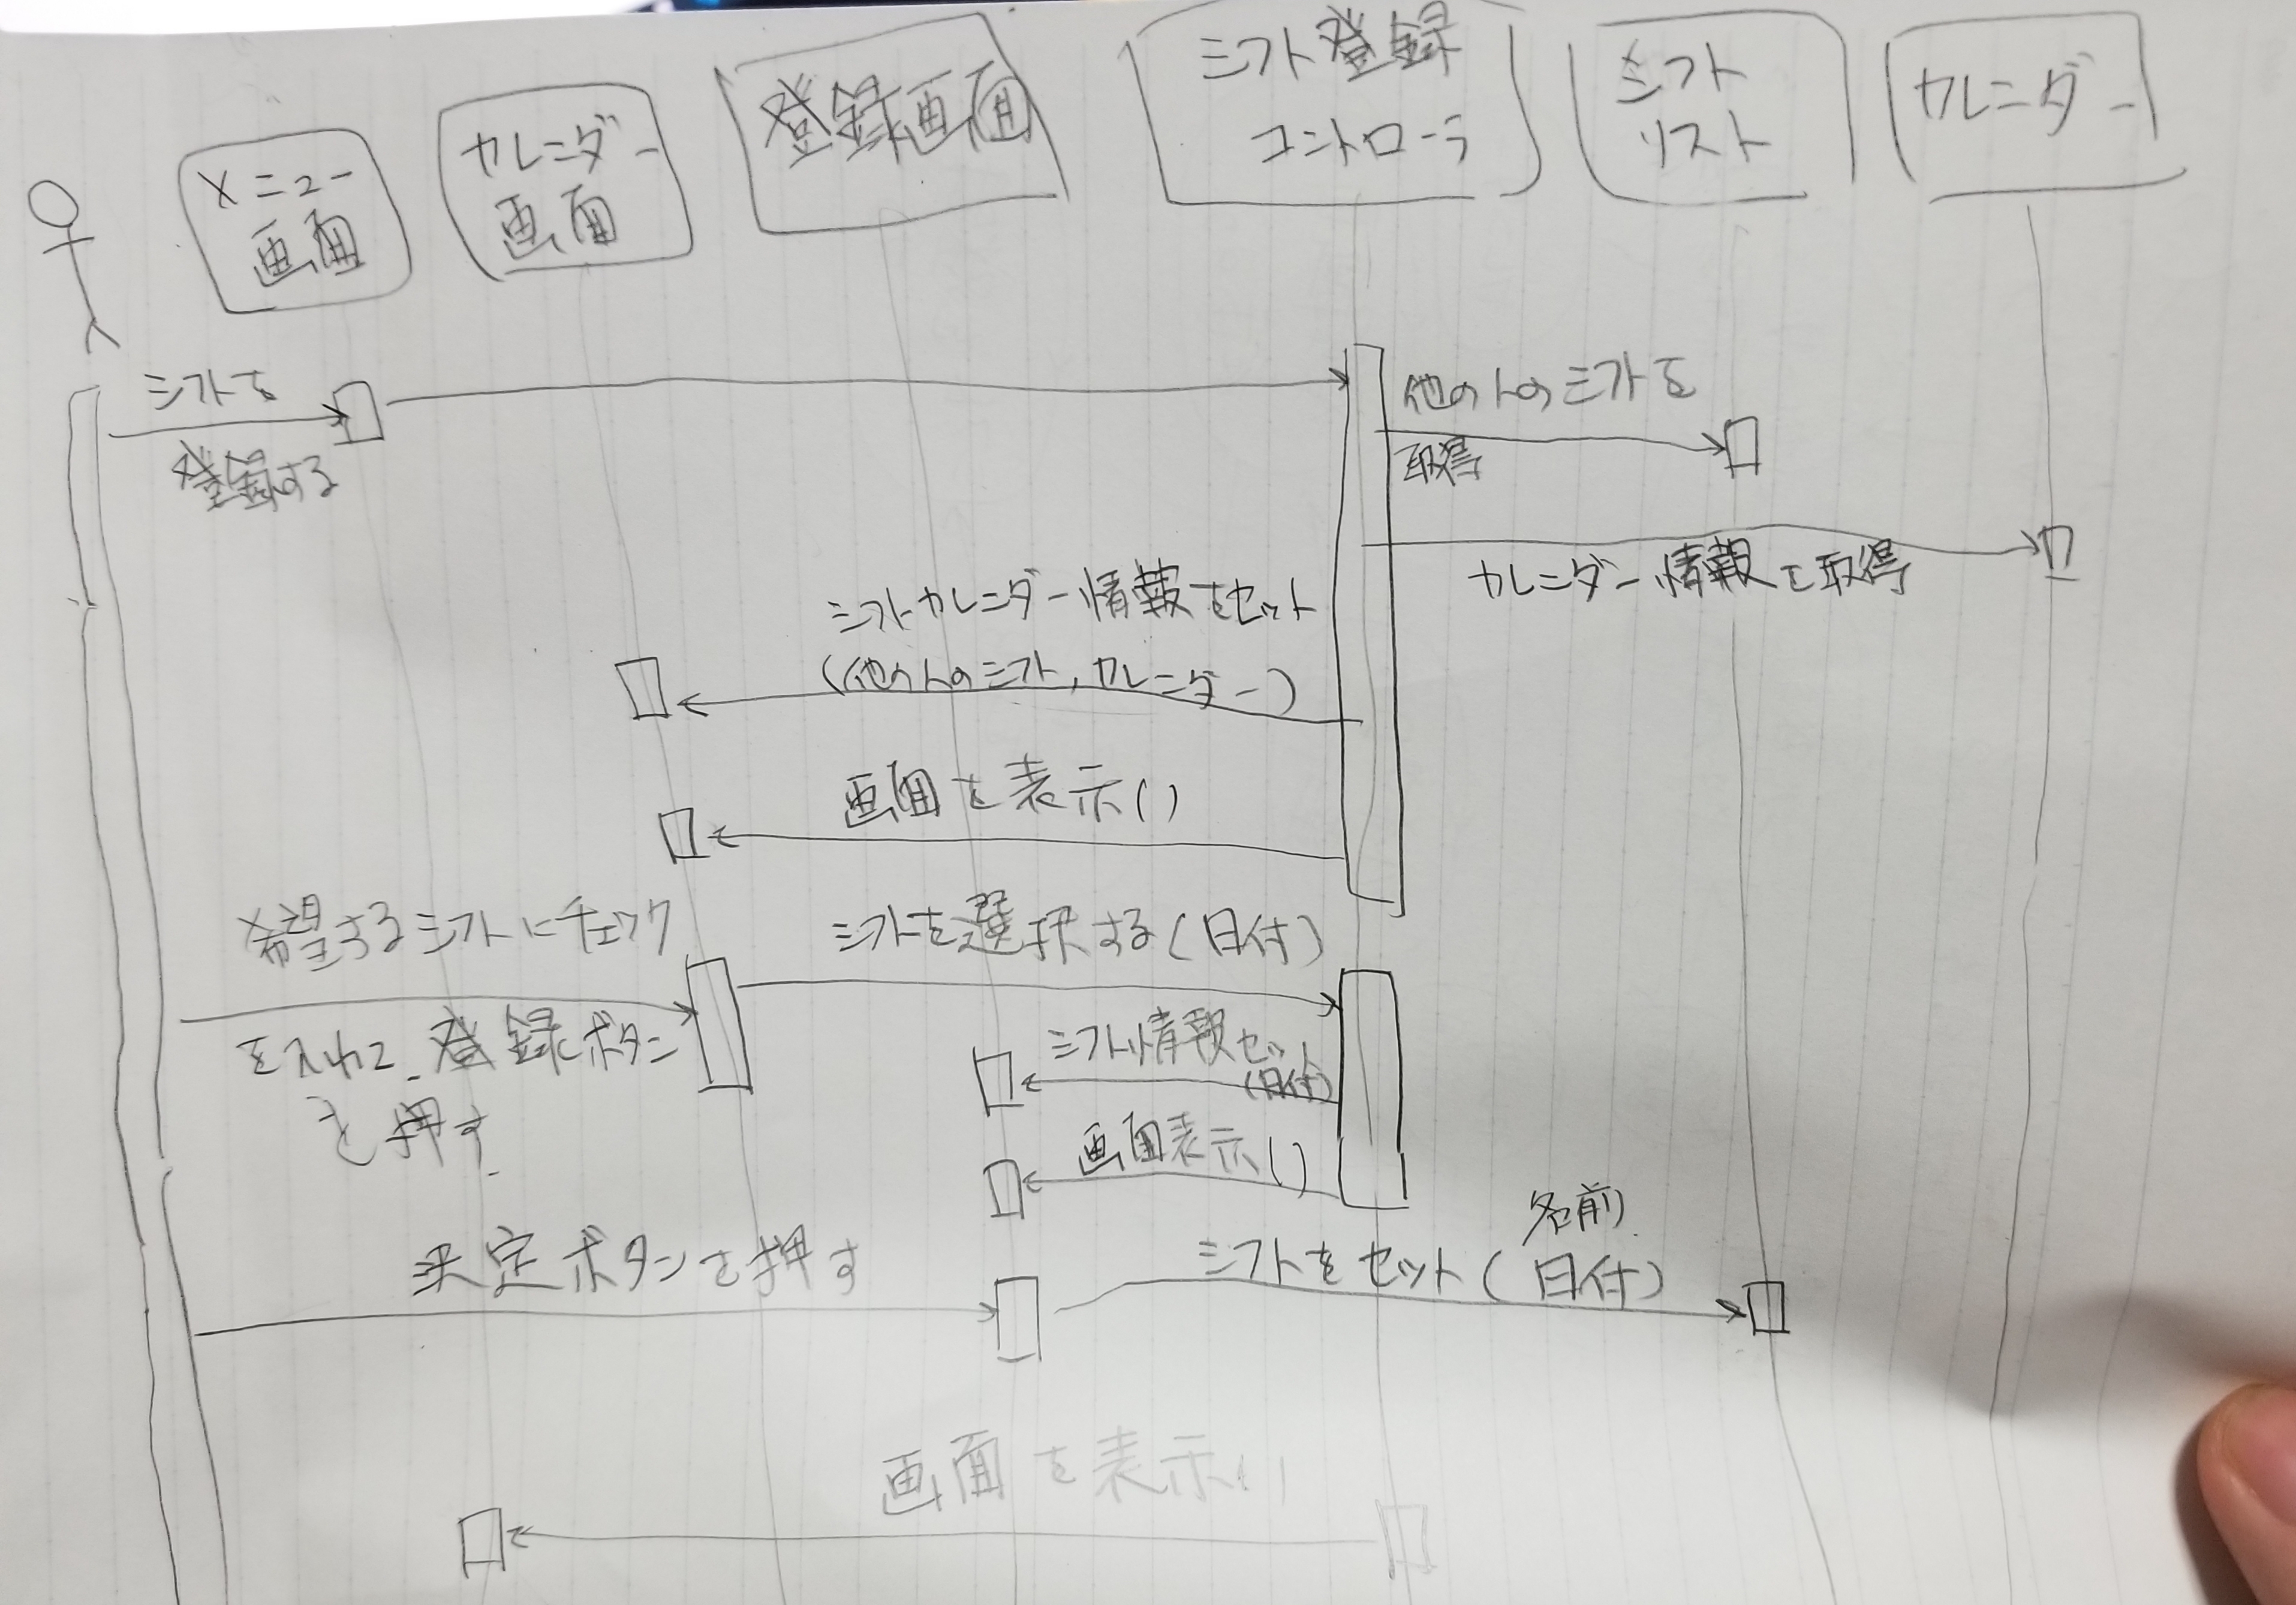 メニュー
画面
カレンダー
画面
登録画面
シフト登録
コントローラ
シフト
リスト
カレンダー
シフトを
登録する
他の人のシフトを
取得
カレンダー情報を取得
シフトカレンダー情報をセット
(他の人のシフト,カレンダー)
画面を表示()
希望するシフトにチェック
を入れて、登録ボタン
を押す
シフトを選択する(日付)
シフト情報セット
(日付)
画面表示()
決定ボタンを押す
名前
シフトをセット(日付)
画面を表示()